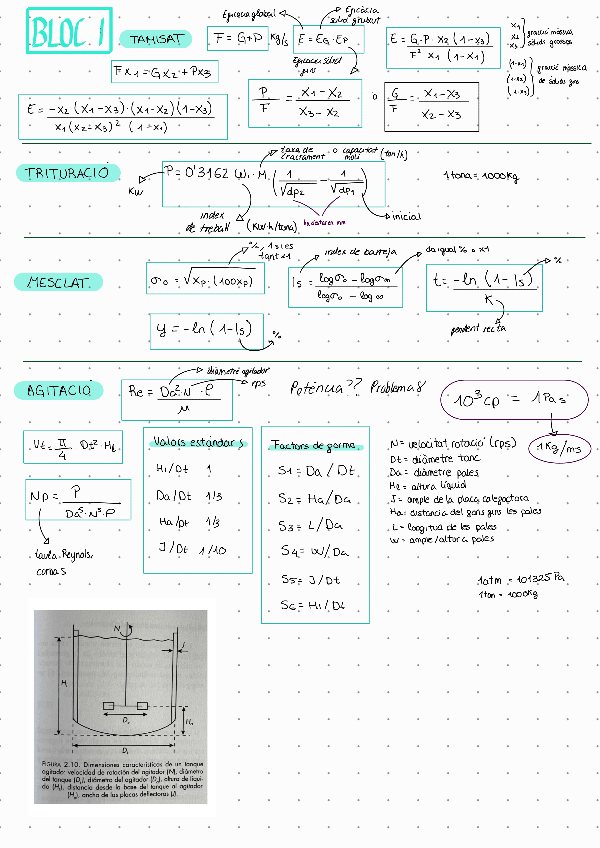 BLOC 1
TAMISAT
Eficacia global
Eficàcia sòlid gruixut
F = G+P Kg/s
E = EG · EP
Eficacia sòlid gros
E = G·P· x2 (1-x3) / F² x1 (1-x1)
x1
x2
x3
gració màssica
sòlids grossos
(1-x1)
(1-x2)
(1-x3)
gració màssica
de sòlids gins
Fx1 = Gx2 + Px3
E = -x2 (x1-x3)·(x1-x2)(1-x3) / x1(x2-x3)² (1-x1)
P/F = x1-x2 / x3-x2
o
G/F = x1-x3 / x2-x3
TRITURACIÓ
taxa de cracrament o capacitat molí (ton/h)
P = 0'3162 Wi · M · (1/√dp2 - 1/√dp1)
1 tona = 1000kg
KW
index de treball (KW·h/tona)
inicial
MESCLAT
%, 1 si es tant x1
index de barreja
da igual % o x1
%
σo = √xp·(100xp)
Is = logσo - logσm / logσo - log∞
t = -ln (1-Is) / K
pendent recta
y = -ln (1-Is)
%
AGITACIÓ
diàmetre agitador
rps
Re = Da²·N·ρ / μ
Potència?? Problema 8
10³cp = 1Pa s
1Kg/ms
Vt = π/4 Dt²·HL
Np = P / Da⁵·N³·ρ
taula. Reynols,
corbas
Valors estandars
Hl/Dt 1
Da/Dt 1/3
Ha/Dt 1/3
J/Dt 1/10
Factors de forma
S1 = Da / Dt
S2 = Ha/Da
S3 = L/Da
S4 = W/Da
S5 = J/Dt
S6 = Hl/Dt
N = velocitat rotació (rps)
Dt = diàmetre tanc
Da = diàmetre pales
Hl = altura líquid
J = ample de la placa colepctora
Ha = distancia del gons gins les pales
L = longitud de les pales
W = ample/altura pales
1atm = 101325 Pa
1ton = 1000kg
N
J
Hl
Ha
Da
Dt
FIGURA 2.10. Dimensiones características de un tanque
agitado: velocidad de rotación del agitador (N), diámetro
del tanque (Dt), diámetro del agitador (Da), altura de líqui-
do (Hl), distancia desde la base del tanque al agitador
(Ha), ancho de las placas deflectoras (J).